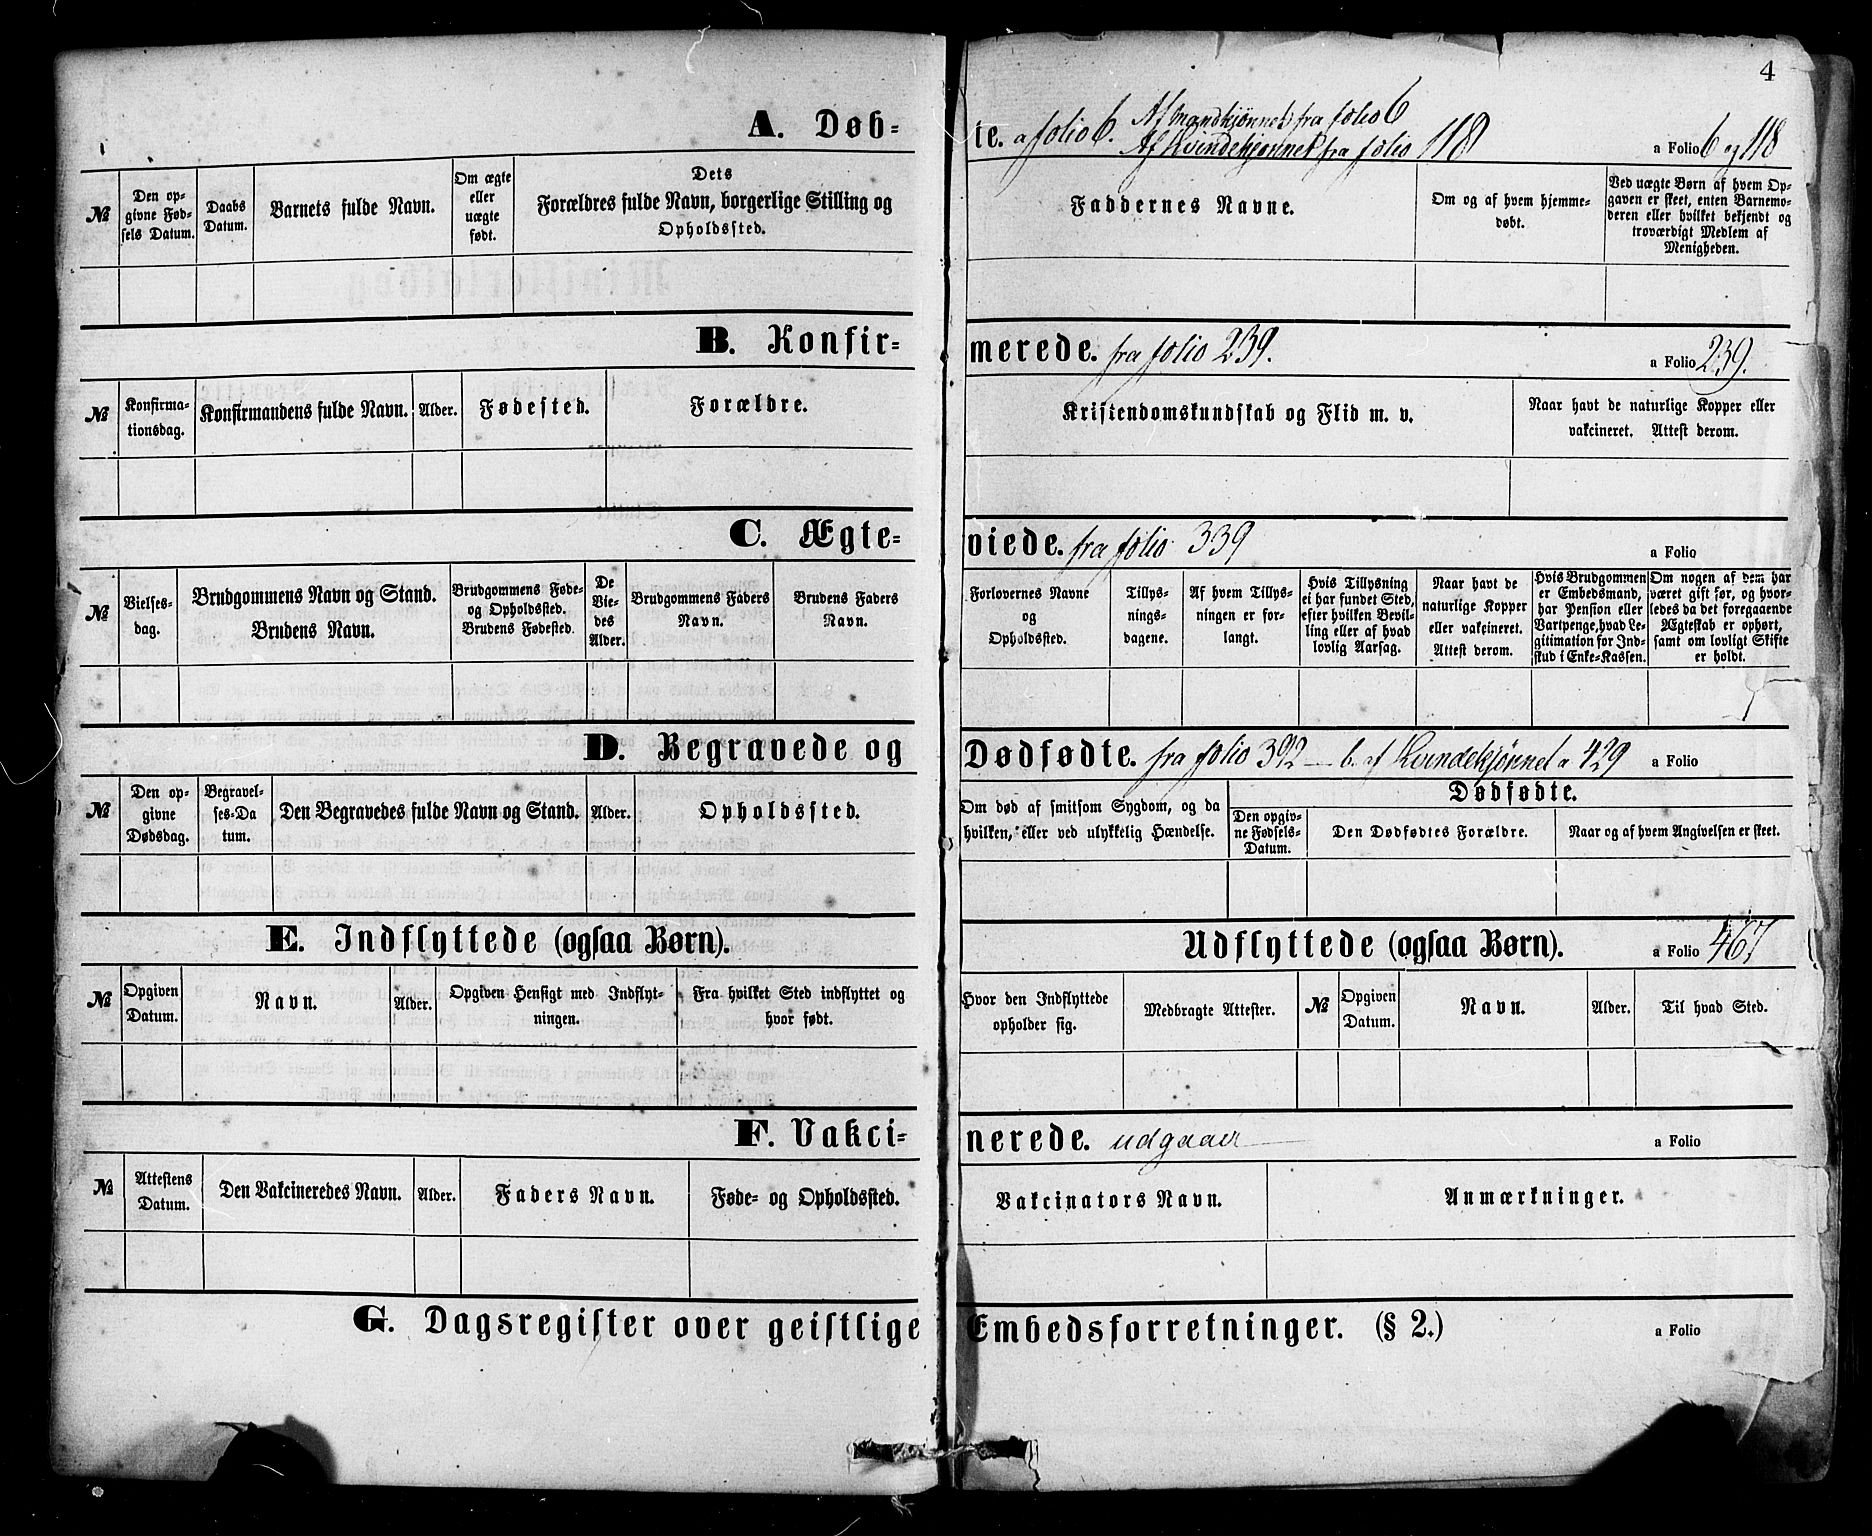 4
A. Døb-
te. a folio 6. Af Mandkjønnet fra folio 6
Af Kvindekjønnet fra folio 118
a Folio 6 og 118
№
Den op-
givne Fød-
sels Datum.
Daabs
Datum.
Barnets fulde Navn.
Om ægte
eller
uægte
født.
Dets
Forældres fulde Navn, borgerlige Stilling og
Opholdssted.
Faddernes Navne.
Om og af hvem hjemme-
døbt.
Ved uægte Børn af hvem Op-
gaven er skeet, enten Barnemo-
deren eller hvilket bekjendt og
troværdigt Medlem af
Menigheden.
B. Konfir-
merede. fra folio 239.
a Folio 239.
№
Konfirma-
tionsdag.
Konfirmandens fulde Navn.
Alder.
Fødested.
Forældre.
Kristendomskundskab og Flid m. v.
Naar havt de naturlige Kopper eller
vakcineret. Attest derom.
C. Ægte-
viede. fra folio 339
a Folio
№
Vielses-
dag.
Brudgommens Navn og Stand.
Brudens Navn.
Brudgommens Føde-
og Opholdssted.
Brudens Fødested.
De
Vie-
des
Alder.
Brudgommens Faders
Navn.
Brudens Faders
Navn.
Forlovernes Navne
og
Opholdssted.
Tillys-
nings-
dagene.
Af hvem Tillys-
ningen er for-
langt.
Hvis Tillysning
ei har fundet Sted,
efter hvilken Bevil-
ling eller af hvad
lovlig Aarsag.
Naar havt de
naturlige Kopper
eller vakcineret.
Attest derom.
Hvis Brudgommen
er Embedsmand,
har Pension eller
Vartpenge, hvad Le-
gitimation for Ind-
skud i Enke-Kassen.
Om nogen af dem har
været gift før, og hvor-
ledes da det foregaaende
Ægteskab er ophørt,
samt om lovligt Skifte
er holdt.
D. Begravede og
Dødfødte. fra folio 392 — b. af Kvindekjønnet a 429
a Folio
№
Den op-
givne
Dødsdag.
Begravel-
ses-Da
tum.
Den Begravedes fulde Navn og Stand.
Alder.
Opholdssted.
Om død af smitsom Sygdom, og da
hvilken, eller ved ulykkelig Hændelse.
Dødfødte.
Den opgiv-
ne Fødsels-
Datum.
Den Dødfødtes Forældre.
Naar og af hvem Angivelsen er skeet.
E. Indflyttede (ogsaa Børn).
Udflyttede (ogsaa Børn).
a Folio 467
№
Opgiven
Datum.
Navn.
Alder.
Opgiven Hensigt med Indflyt-
ningen.
Fra hvilket Sted indflyttet og
hvor født.
Hvor den Indflyttede
opholder sig.
Medbragte Attester.
№
Opgiven
Datum.
Navn.
Alder.
Til hvad Sted.
F. Vakci-
nerede. udgaaer
a Folio
№
Attestens
Datum.
Den Vakcineredes Navn.
Alder.
Faders Navn.
Føde- og Opholdssted.
Vakcinators Navn.
Anmærkninger.
G. Dagsregister over geistlige
Embedsforretninger. (§ 2.)
a Folio